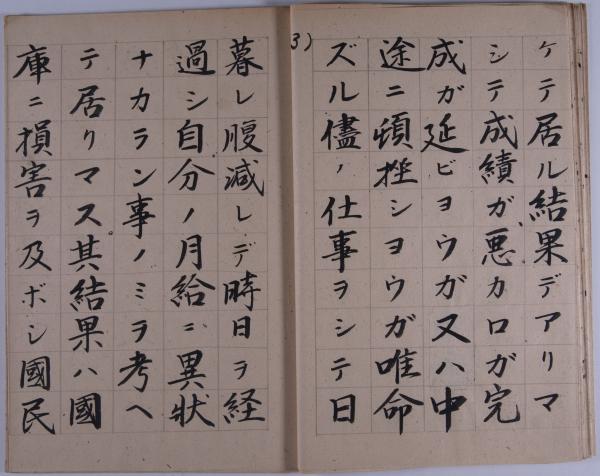 ケテ居ル結果デアリマ
シテ成績ガ悪カロガ完
成ガ延ビヨウガ又ハ中
途ニ頓挫シヨウガ唯命
ズル儘ノ仕事ヲシテ日
3)
暮レ腹減レデ時日ヲ経
過シ自分ノ月給ニ異状
ナカラン事ノミヲ考ヘ
テ居リマス其結果ハ國
庫ニ損害ヲ及ボシ國民